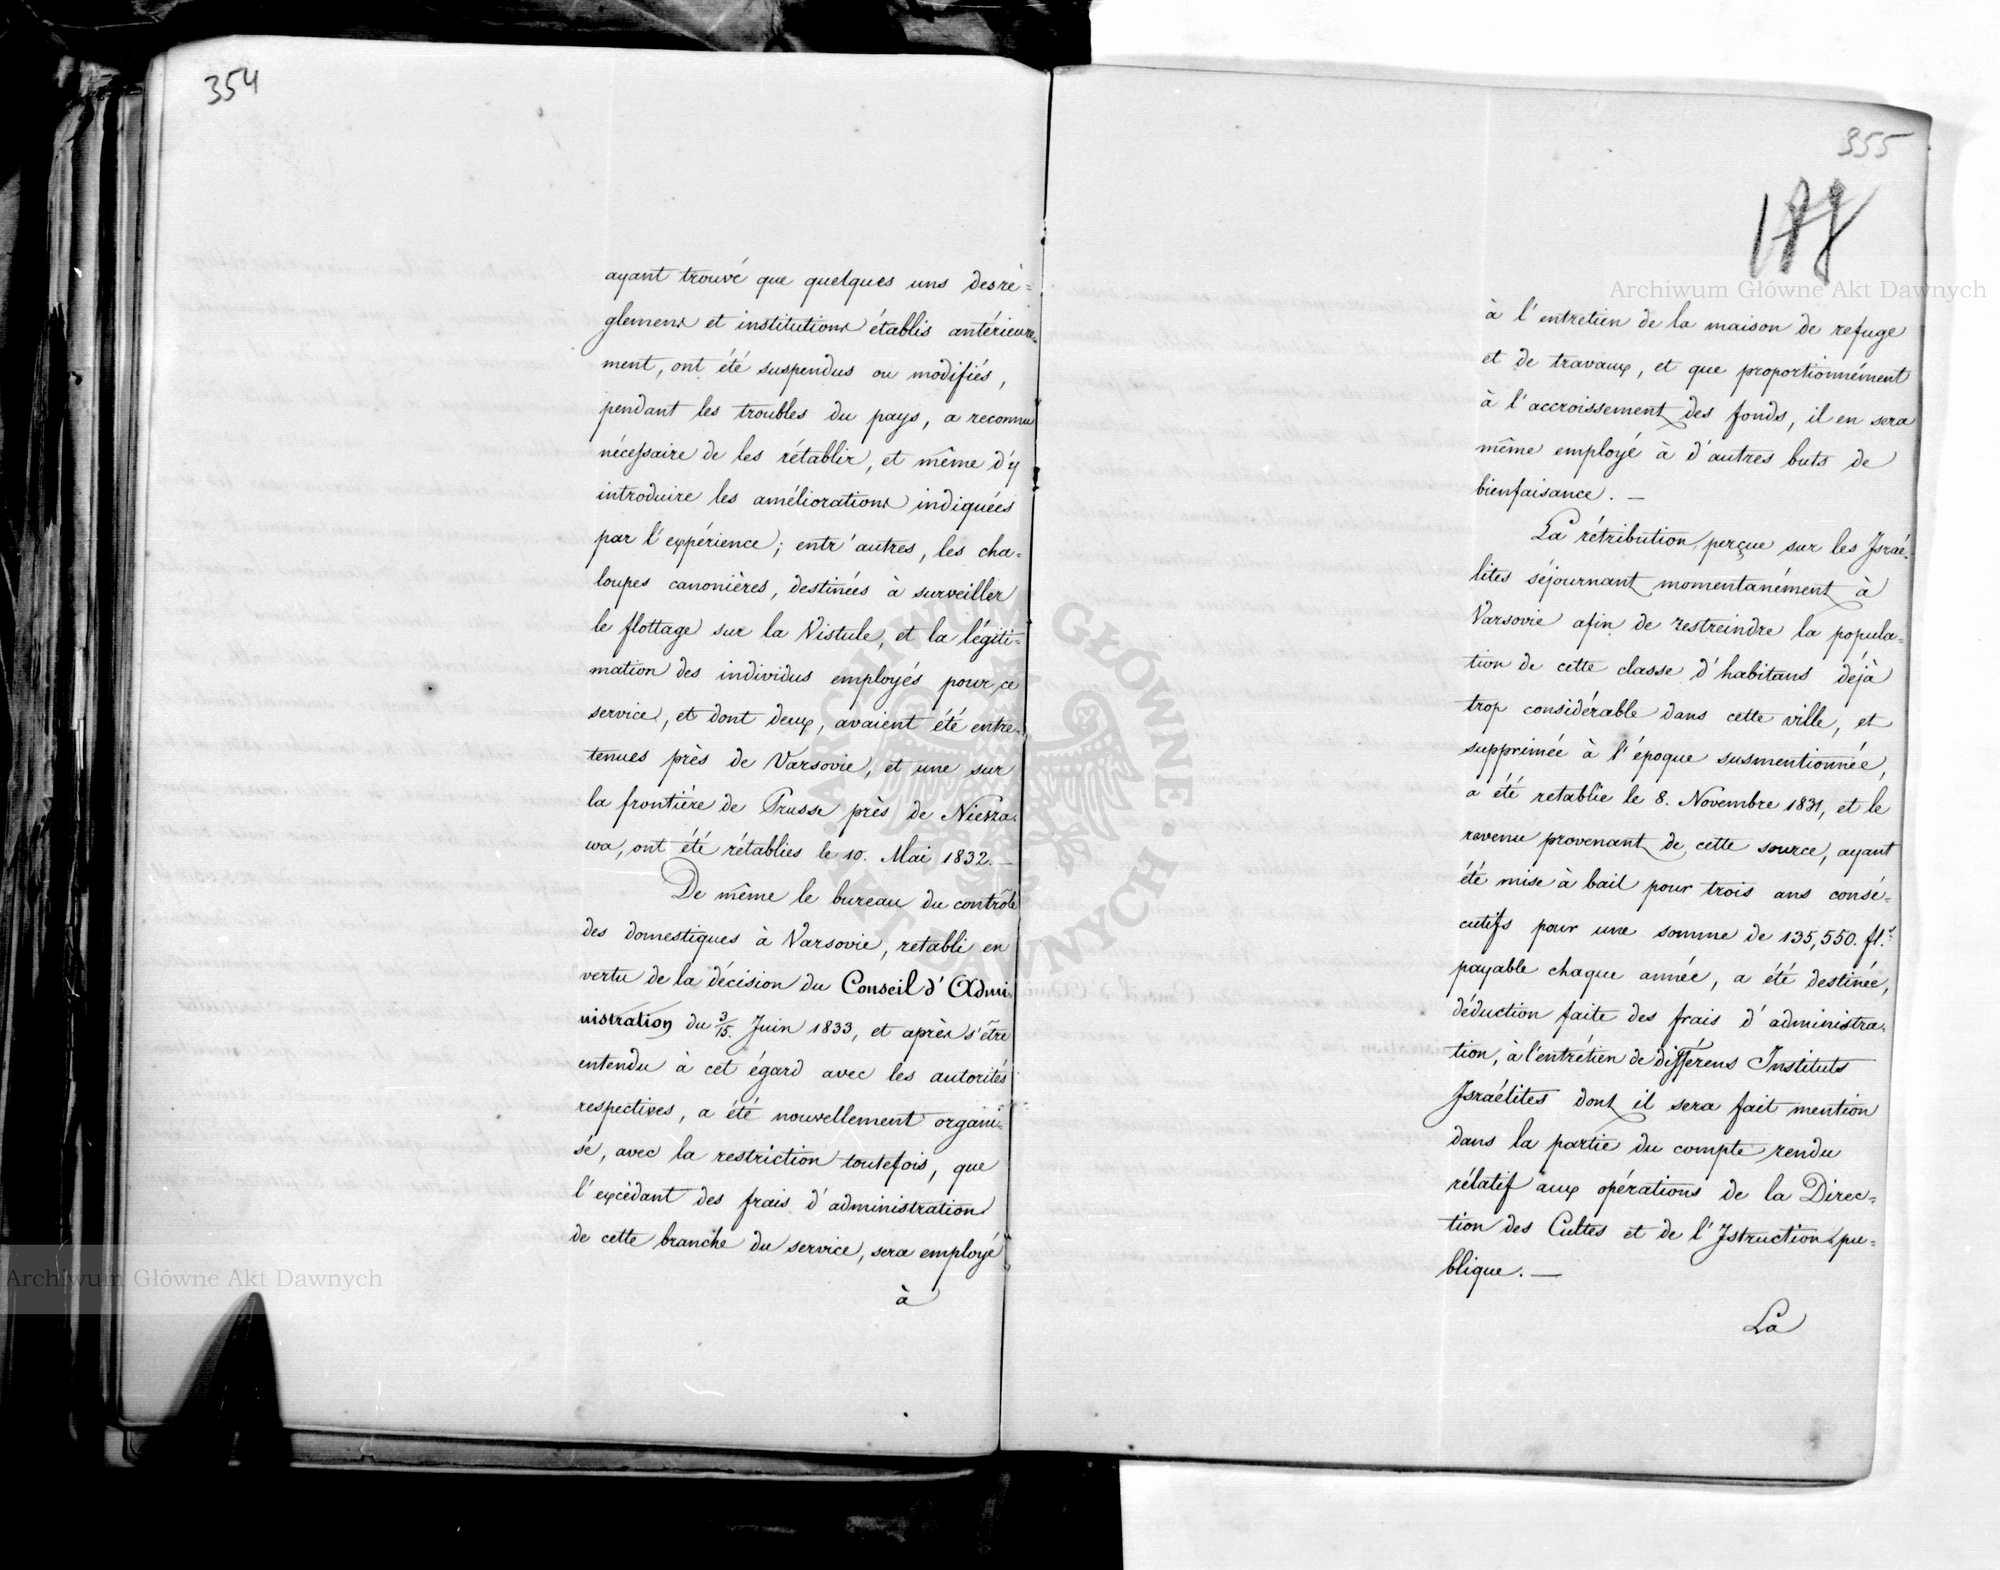 354
ayant trouvé que quelques uns des ré=
glemens et institutions établis antérieure=
ment, ont été suspendus ou modifiés,
pendant les troubles du pays, a reconnu
nécessaire de les rétablir, et même d'y
introduire les améliorations indiquées
par l'expérience; entr'autres, les cha=
loupes canonières, destinées à surveiller
le flottage sur la Vistule, et la légiti=
mation des individus employés pour ce
service, et dont deux, avaient été entre=
tenues près de Varsovie, et une sur
la frontière de Prusse près de Niesza=
wa, ont été rétablies le 10. Mai 1832. —
De même le bureau du contrôle
des domestiques à Varsovie, retabli en
vertu de la décision du Conseil d'Admi=
nistration du 3/15. Juin 1833, et après s'être
entendu à cet égard avec les autorités
respectives, a été nouvellement organi=
sé, avec la restriction toutefois, que
l'excédant des frais d'administration
de cette branche du service, sera employé
à
355
à l'entretien de la maison de refuge
et de travaux, et que proportionnément
à l'accroissement des fonds, il en sera
même employé à d'autres buts de
bienfaisance. —
La rétribution perçue sur les Israé=
lites séjournant momentanément à
Varsovie afin de restreindre la popula=
tion de cette classe d'habitans déjà
trop considérable dans cette ville, et
supprimée à l'époque susmentionnée,
a été retablie le 8. Novembre 1831, et le
revenu provenant de cette source, ayant
été mise à bail pour trois ans consé=
cutifs pour une somme de 135,550. fl.s
payable chaque année, a été destinée,
déduction faite des frais d'administra=
tion, à l'entrétien de différens Instituts
Israélites dont il sera fait mention
dans la partie du compte rendu
rélatif aux opérations de la Direc=
tion des Cultes et de l'Istruction pu=
blique. —
La
Archiwum Główne Akt Dawnych
Archiwum Główne Akt Dawnych
ARCHIWUM GŁÓWNE · AKT DAWNYCH ·